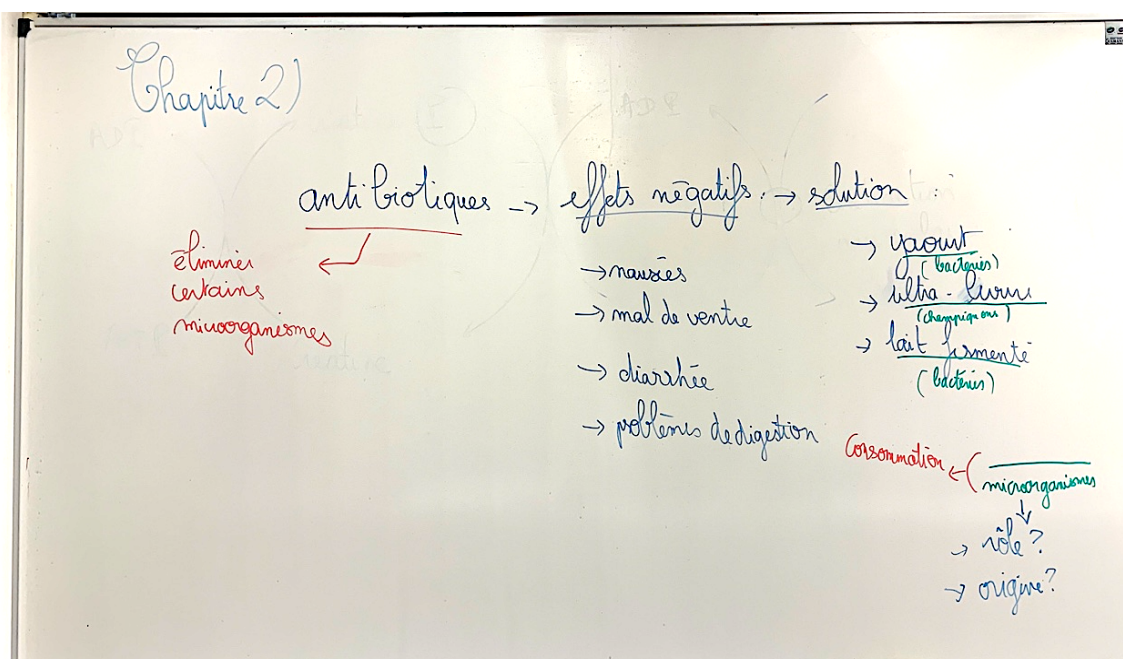 Chapitre 2)
antibiotiques → effets négatifs : → solution :
éliminer
certains
microorganismes
→ nausées
→ mal de ventre
→ diarrhée
→ problèmes de digestion
→ yaourt
(bactéries)
→ ultra-levure
(champignons)
→ lait fermenté
(bactéries)
Consommation ← (
microorganismes
↓
→ rôle ?
→ origine ?